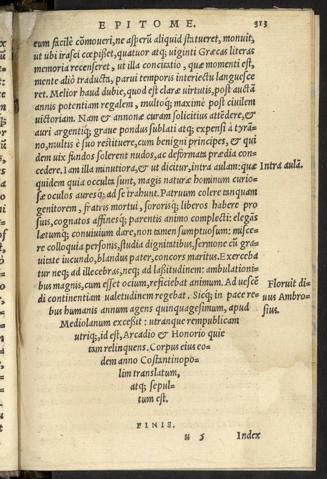 EPITOME. 313
eum facilè cõmoueri, ne asperũ aliquid statueret, monuit,
ut ubi irasci cœpisset, quatuor atq; uiginti Græcas literas
memoria recenseret, ut illa concitatio, quæ momenti est,
mente aliò traducta, parui temporis interiectu languesce
ret. Melior haud dubie, quod est claræ uirtutis, post auctã
annis potentiam regalem, multoq; maximè post ciuilem
uictoriam. Nam & annonæ curam solicitius attẽdere, &
auri argentiq; graue pondus sublati atq; expensi à tyrã-
no, multis è suo restituere, cum benigni principes, & qui
dem uix fundos solerent nudos, ac deformata prædia con-
cedere. Iam illa minutiora, & ut dicitur, intra aulam: quæ
Intra aulã.
quidem quia occulta sunt, magis naturæ hominum curio-
sæ oculos auresq; ad se trahunt. Patruum colere tanquam
genitorem, fratris mortui, sororisq; liberos habere pro
suis, cognatos affinesq; parentis animo complecti: elegãs
lætumq; conuiuium dare, non tamen sumptuosum: misce-
re colloquia personis, studia dignitatibus, sermone cũ gra-
uitate iucundo, blandus pater, concors maritus. Exerceba
tur neq; ad illecebras, neq; ad lassitudinem: ambulationi-
bus magnis, cum esset ocium, reficiebat animum. Ad uescẽ
di continentiam ualetudinem regebat. Sicq; in pace re-
Floruit di-
uus Ambro-
sius.
bus humanis annum agens quinquagesimum, apud
Mediolanum excessit: utranque rempublicam
utrisq;, id est, Arcadio & Honorio quie
tam relinquens. Corpus eius eo-
dem anno Cõstãtinopo-
lim translatum,
atq; sepul-
tum est.
FINIS.
u 5 Index